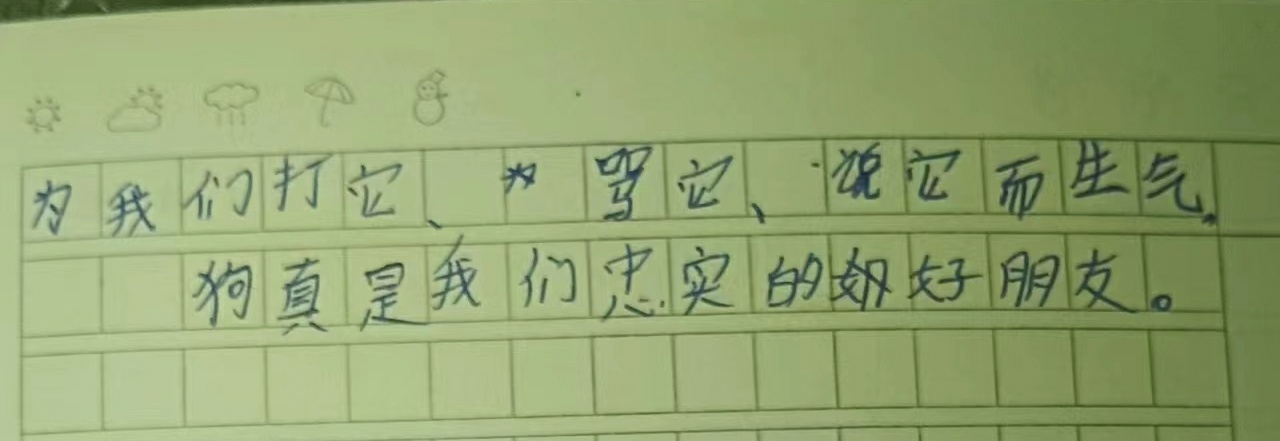 为我们打它、骂它、说它而生气。
狗真是我们忠实的好朋友。